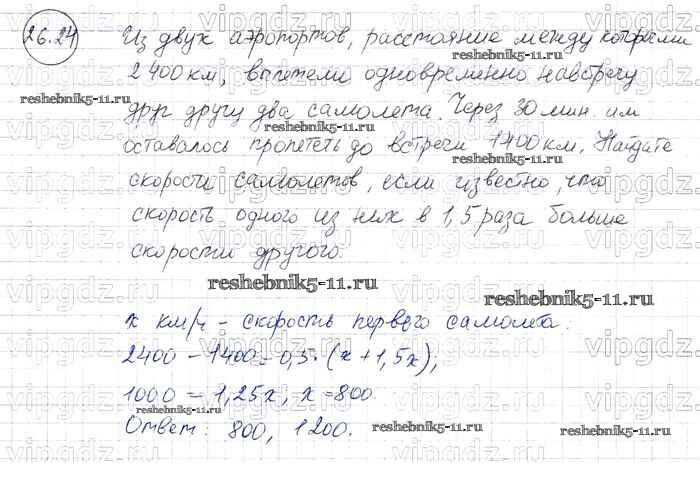 26.24
Из двух аэропортов, расстояние между которыми
2400 км, вылетели одновременно навстречу
друг другу два самолета. Через 30 мин. им
оставалось пролететь до встречи 1400 км. Найдите
скорости самолетов, если известно, что
скорость одного из них в 1,5 раза больше
скорости другого.
x км/ч – скорость первого самолета.
2400 – 1400 = 0,5·(x+1,5x);
1000 = 1,25x, x = 800.
Ответ: 800, 1200.
reshebnik5-11.ru
vipgdz.ru